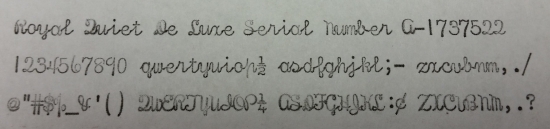 Royal Quiet De Luxe Serial Number A-1737522
1234567890 qwertyuiop½ asdfghjkl;- zxcvbnm,./
@"#$%_&'() QWERTYUIOP¼ ASDFGHJKL:¢ ZXCVBNM,.?